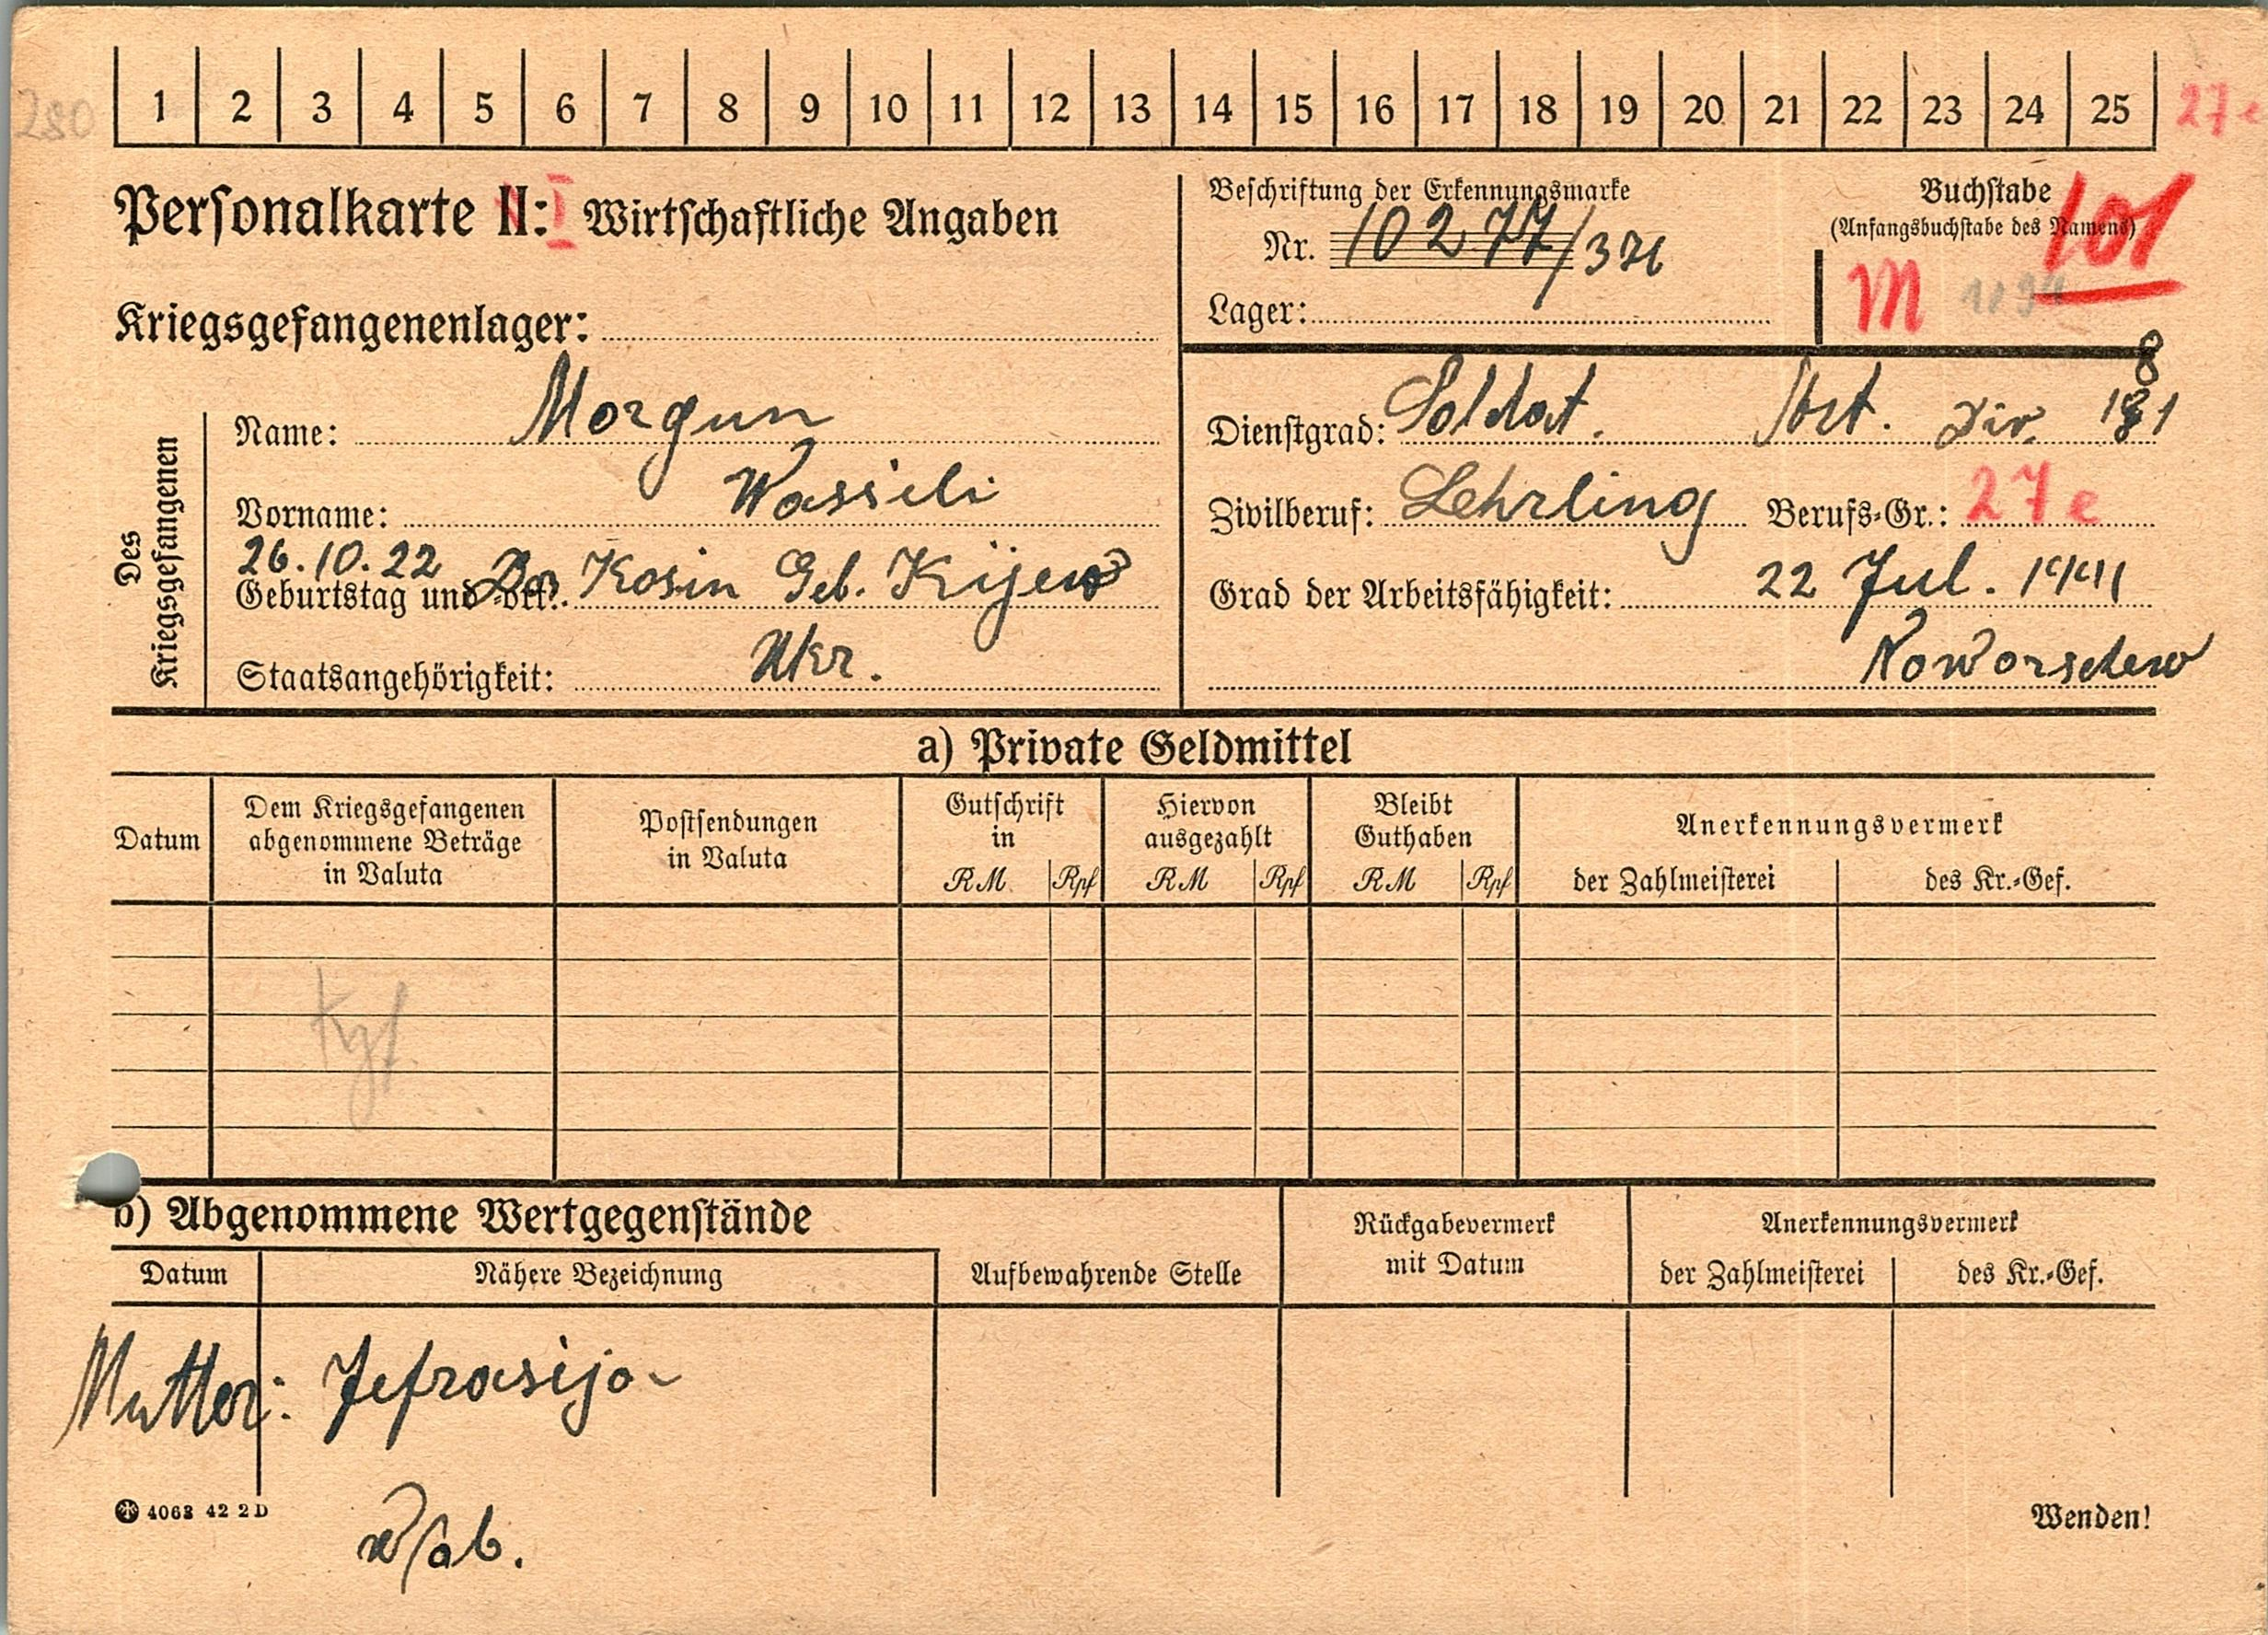 280 1 2 3 4 5 6 7 8 9 10 11 12 13 14 15 16 17 18 19 20 21 22 23 24 25 27e
Personalkarte II: I Wirtschaftliche Angaben
Kriegsgefangenenlager:
Beschriftung der Erkennungsmarke
Nr. 10277/376
Lager:
Buchstabe
(Anfangsbuchstabe des Namens)
101
M
Des Kriegsgefangenen
Name: Morgun
Vorname: Wassili
26.10.22
Geburtstag und -ort: Kosin Geb. Kijew
Staatsangehörigkeit: Ukr.
Dienstgrad: Soldat. Div. 181
8
Zivilberuf: Lehrling Berufs-Gr.: 27e
Grad der Arbeitsfähigkeit: 22 Jul. 1941
Noworschew
a) Private Geldmittel
Datum
Dem Kriegsgefangenen
abgenommene Beträge
in Valuta
Postsendungen
in Valuta
Gutschrift
in
RM Rpf
Hiervon
ausgezahlt
RM Rpf
Bleibt
Guthaben
RM Rpf
Anerkennungsvermerk
der Zahlmeisterei des Kr.-Gef.
Kgf
b) Abgenommene Wertgegenstände
Datum Nähere Bezeichnung
Aufbewahrende Stelle
Rückgabevermerk
mit Datum
Anerkennungsvermerk
der Zahlmeisterei des Kr.-Gef.
Mutter: Jefrasija
4063 42 2 D
Wenden!